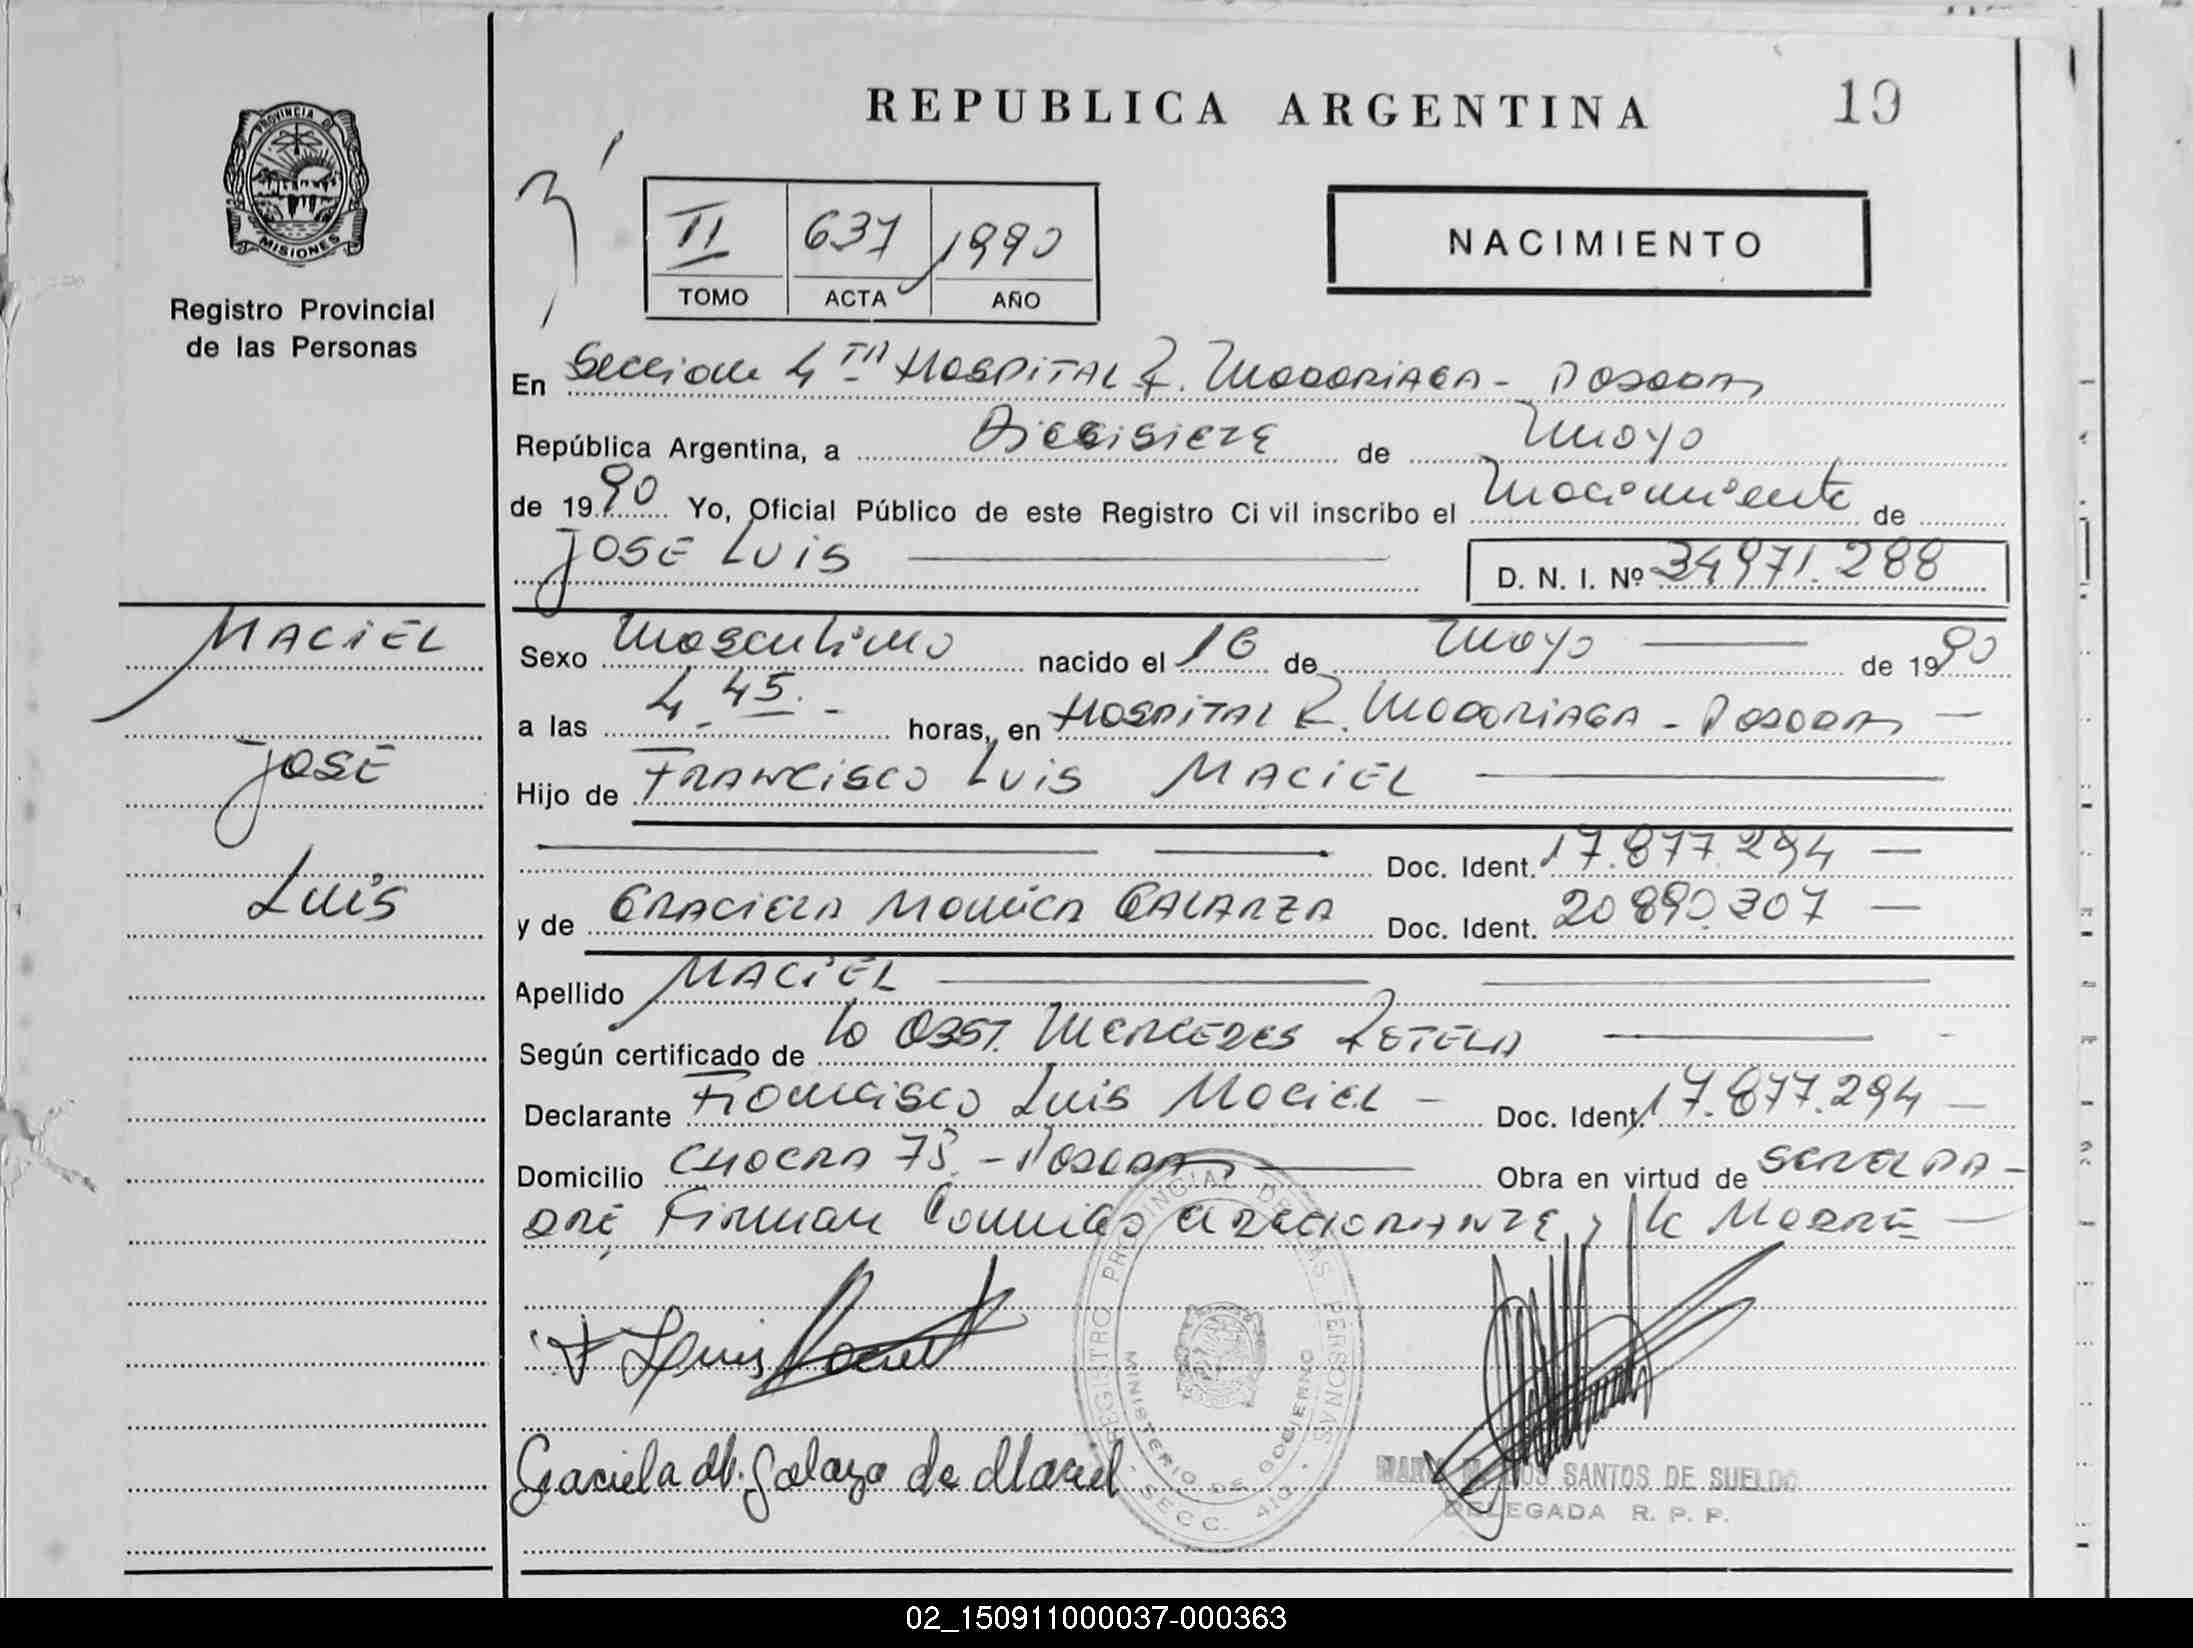 REPUBLICA ARGENTINA
19
PROVINCIA DE
MISIONES
Registro Provincial
de las Personas
II 637 1990
TOMO ACTA AÑO
NACIMIENTO
En Seccion 4ta Hospital R. Madariaga - Posadas
República Argentina, a Diecisiete de Mayo
de 1990 Yo, Oficial Público de este Registro Civil inscribo el Nacimiento de
JOSE LUIS D. N. I. Nº 34971.288
MACIEL
JOSE
Luis
Sexo Masculino nacido el 16 de Mayo de 1990
a las 4.45.- horas, en Hospital R. Madariaga - Posadas -
Hijo de FRANCISCO LUIS MACIEL
Doc. Ident. 17.877.294 -
y de GRACIELA MONICA GALARZA Doc. Ident. 20890.307 -
Apellido MACIEL
Según certificado de la Obst. MERCEDES
Declarante Francisco Luis Maciel - Doc. Ident. 17.877.294 -
Domicilio CHACRA 73.- Posadas Obra en virtud de
Firman Conmigo el declarante y la Madre -
REGISTRO PROVINCIAL DE LAS PERSONAS
MINISTERIO DE GOBIERNO
- SECC. 4ta. -
Graciela M. Galarza de Maciel
DOS SANTOS DE SUELDO
DELEGADA R. P. P.
02_150911000037-000363